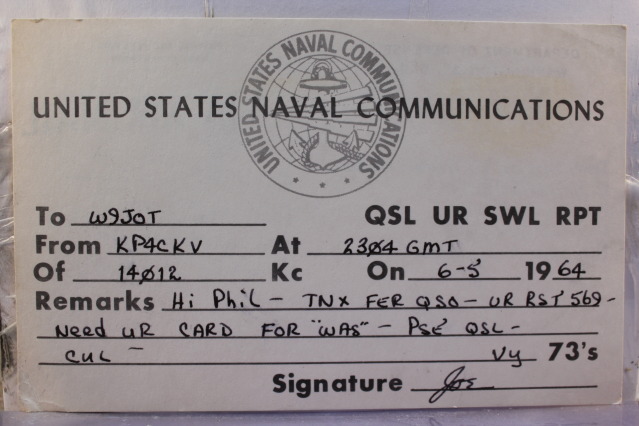 UNITED STATES NAVAL COMMUNICATIONS
UNITED STATES NAVAL COMMUNICATIONS
To W9JOT QSL UR SWL RPT
From KP4CKV At 23Ø4 GMT
Of 14Ø12 Kc On 6-5 1964
Remarks Hi Phil - TNX FER QSO - UR RST 569 -
Need UR CARD FOR "WAS" - PSE QSL -
CUL - Vy 73's
Signature Joe